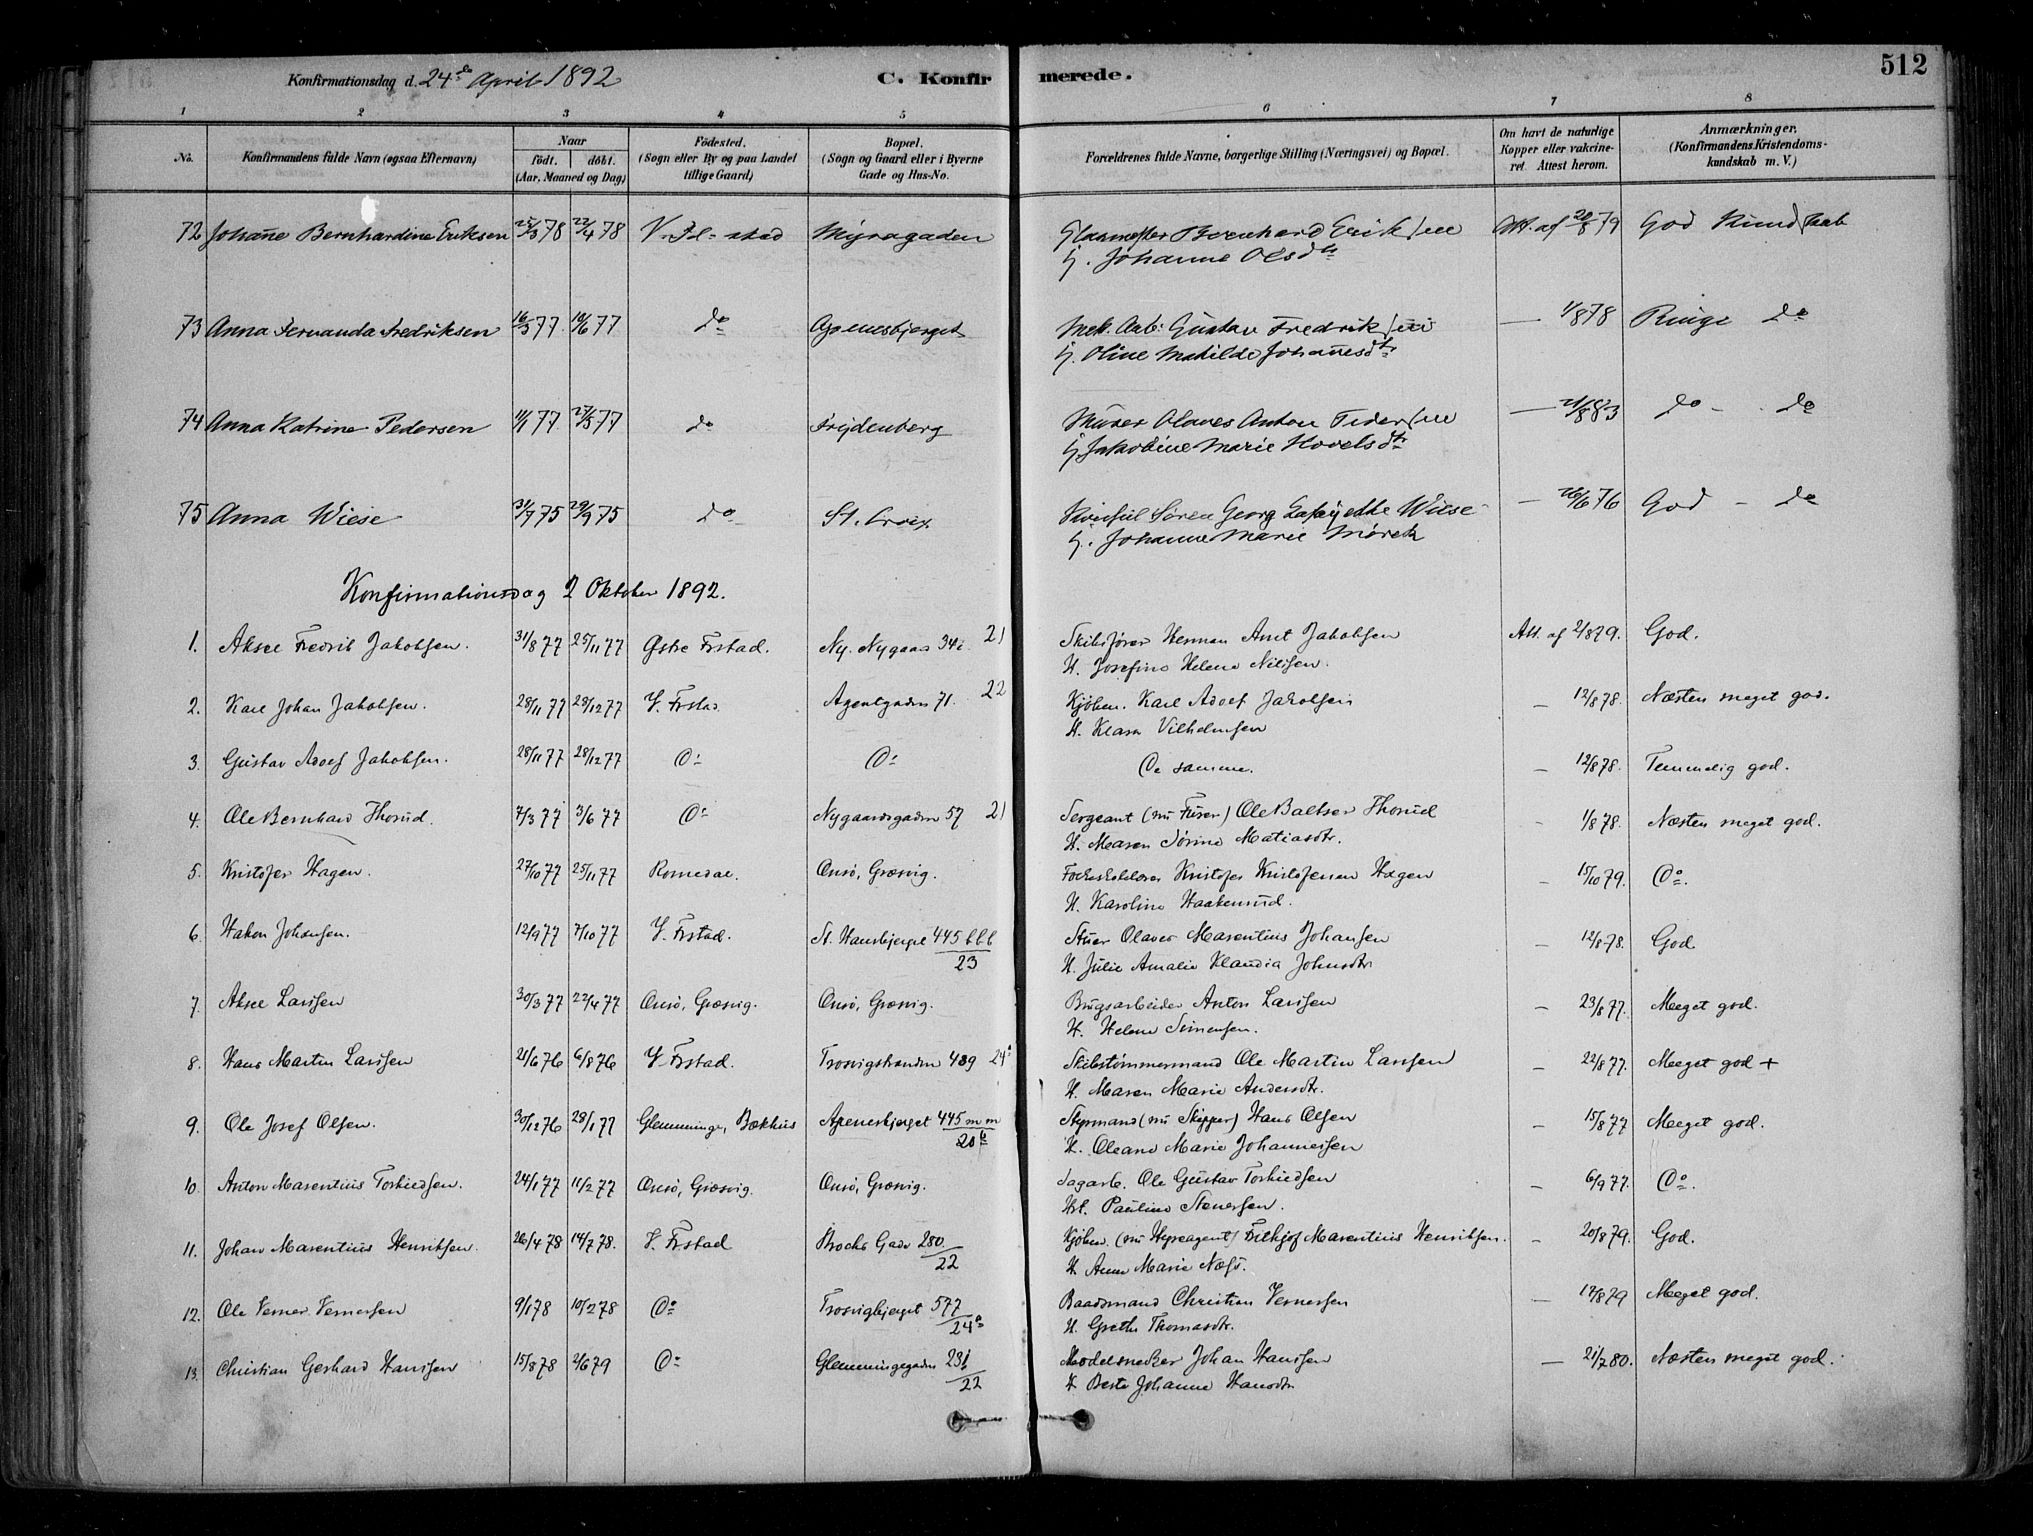 512
Konfirmationsdag d. 24de April 1892 C. Konfirmerede.
1 2 3 4 5 6 7 8
No. Konfirmandens fulde Navn (ogsaa Efternavn) Naar født. døbt. (Aar, Maaned og Dag) Fødested. (Sogn eller By og paa Landet tillige Gaard) Bopæl. (Sogn og Gaard eller i Byerne Gade og Hus-No. Forældrenes fulde Navne, borgerlige Stilling (Næringsvei) og Bopæl. Om havt de naturlige Kopper eller vakcineret. Attest herom. Anmærkninger. (Konfirmandens Kristendomskundskab m. V.)
72 Johanne Bernhardine Eriksen 25/3 78 22/4 78 V. Fr.stad Myragaden Glasmester Bernhard Eriksen Att. af 20/8 79 God Kundskab
H. Johanne Olsdtr
73 Anna Fernanda Fredriksen 16/3 77 10/6 77 do Apenesbjerget Mek. Arb: Gustav Fredriksen — 1/8 78 Ringe do
H. Oline Matilde Johannesdtr
74 Anna Katrine Pedersen 1/1 77 27/5 77 do Frydenberg Murer Olaves Anton Pedersen — 21/8 83 do - do
H. Jakobine Marie Hovelsdtr
75 Anna Wiese 31/7 75 29/9 75 do St. Croix Konsul Søren Georg Lafayette Wiese — 26/6 76 God - do
H. Johanne Marie Mørch
Konfirmationsdag 2 Oktober 1892.
1. Aksel Fredrik Jakobsen. 31/8 77 25/11 77 Østre Frstad. Ny. Nygaas 34i 21 Skibsfører Herman Amt Jakobsen Att. af 2/8 79. God.
H. Josefine Helene Nilsen.
2. Karl Johan Jakobsen. 28/11 77 28/12 77 V. Frstad Agentgaden 71. 22 Kjøbm. Karl Adolf Jakobsen — 12/8 78. Næsten meget god.
H. Klara Vilhelmsen
3. Gustav Adolf Jakobsen. 28/11 77 28/12 77 Do Do De samme. — 12/8 78. Temmelig god.
4. Ole Bernhard Thorud. 7/3 77 3/6 77 Do Nygaardsgaden 57 21 Sergeant (nu Furer) Ole Baltser Thorud - 1/8 78. Næsten meget god.
H. Maren Sørine Matiasdtr.
5. Kristofer Hagen. 27/10 77 25/11 77 Romedal. Onsø, Græsvig. Folkeskolelærer Kristofer Kristofersen Hagen - 15/10 79. Do.
H. Karoline Haakensrud.
6. Hakon Johansen. 12/9 77 7/10 77 V. Frstad. St. Hansbjerget 445 bbb/23 Stuer Olaves Marentius Johansen — 12/8 78. God
H. Julie Amalie Klaudia Johnsdtr
7. Aksel Larssen 30/3 77 22/4 77 Onsø, Græsvig. Onsø, Græsvig. Brugsarbeider Anton Larssen — 23/8 77. Meget god.
H. Helene Simensen.
8. Hans Martin Larssen 21/6 76 6/8 76 V. Frstad. Trosvigstranden 489 24a Skibstømmermand Ole Martin Larssen - 22/8 77. Meget god +
H. Maren Marie Andersdtr.
9. Ole Josef Olsen. 30/12 76 28/1 77 Glemminge, Bækhus Apenesbjerget 445 m m/20b Styrmand (nu Skipper) Hans Olsen - 15/8 77 Meget god.
H. Oleane Marie Johannessen
10. Anton Marentius Torkildsen. 24/1 77 11/2 77 Onsø, Græsvig. Onsø, Græsvig. Sagarb. Ole Gustav Torkildsen - 6/9 77. Do.
Hst. Pauline Stenersen.
11. Johan Marentius Henriksen. 26/4 78 14/7 78. V. Frstad Brochs Gade 280/22 Kjøbm. (nu Hyreagent) Fithjof Marentius Henriksen. - 20/8 79. God.
H. Anne Marie Næss.
12. Ole Verner Vernersen 9/1 78 10/2 78 Do Trosvigbjerget 577/24a Baadsmand Christian Vernersen — 17/8 79 Meget god.
H. Grethe Thomasdtr.
13. Christian Gerhard Hanssen 15/8 78 2/6 79 Do Glemmingegaden 231/22 Modelsnedker Johan Hanssen — 21/7 80. Næsten meget god.
H. Berte Johanne Hansdtr